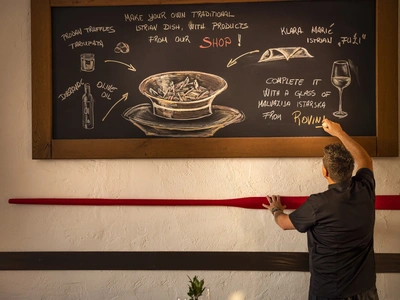 MAKE YOUR OWN TRADITIONAL
ISTRIAN DISH, WITH PRODUCTS
FROM OUR SHOP!
TARTUFATA
OLIVE
OIL
KLARA MARIĆ
ISTRIAN „FUŽI"
COMPLETE IT
WITH A GLASS OF
MALVAZIJA ISTARSKA
FROM ROVINJ